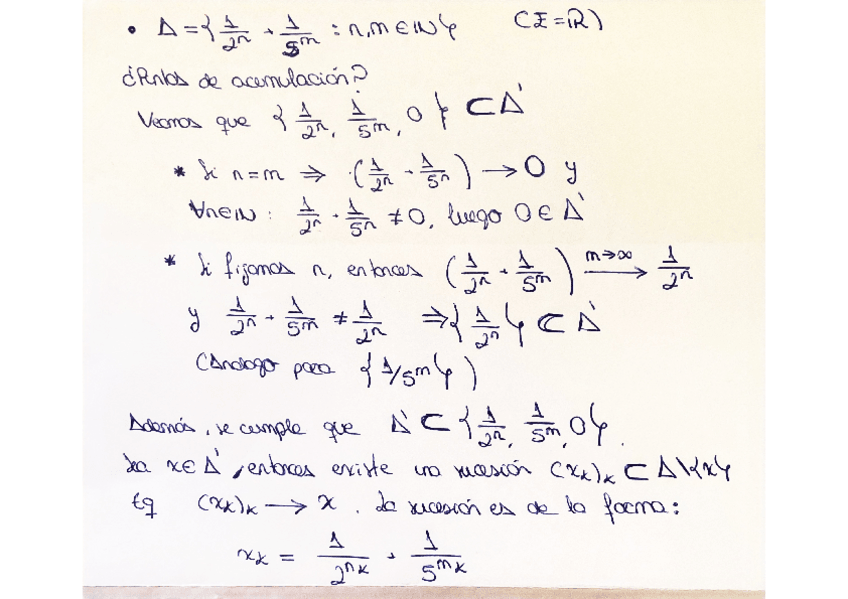 • A = { 1/2ⁿ + 1/5ᵐ : n,m ∈ ℕ } (E = ℝ)
¿Puntos de acumulación?
Veamos que { 1/2ⁿ, 1/5ᵐ, 0 } ⊂ A'
* Si n=m ⇒ (1/2ⁿ + 1/5ⁿ) → 0 y
∀n∈ℕ: 1/2ⁿ + 1/5ⁿ ≠ 0, luego 0 ∈ A'
* Si fijamos n, entonces (1/2ⁿ + 1/5ᵐ) m→∞ → 1/2ⁿ
y 1/2ⁿ + 1/5ᵐ ≠ 1/2ⁿ ⇒ { 1/2ⁿ } ⊂ A'
(Análogo para { 1/5ᵐ })
Además, se cumple que A' ⊂ { 1/2ⁿ, 1/5ᵐ, 0 }.
Sea x∈A', entonces existe una sucesión (xₖ)ₖ ⊂ A\{x}
tq (xₖ)ₖ → x. La sucesión es de la forma:
xₖ = 1/2^{nₖ} + 1/5^{mₖ}